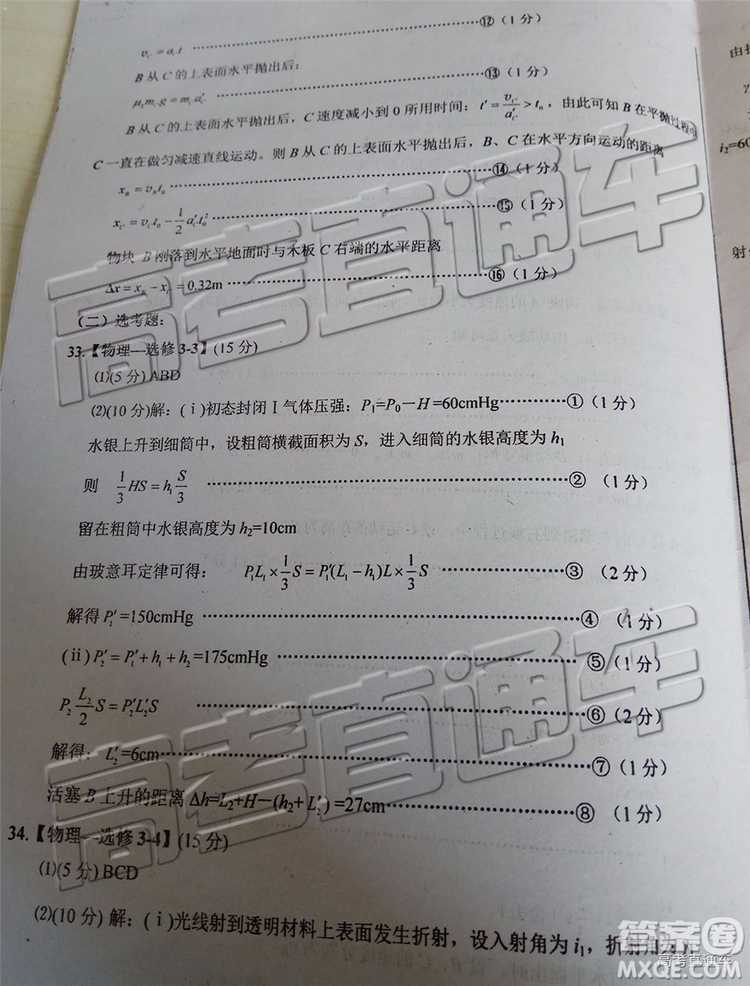 v_c = a_c t ⋯⋯⑫(1分)
B从C的上表面水平抛出后:
μ₁m_c g = m_c a′_c ⋯⋯⑬(1分)
B从C的上表面水平抛出后，C速度减小到0所用时间：t′=v_c/a′_c>t₀，由此可知B在平抛过程中
C一直在做匀减速直线运动。则B从C的上表面水平抛出后，B、C在水平方向运动的距离
x_B = v_B t₀ ⋯⋯⑭(1分)
x_c = v_c t₀ − 1/2 a′_c t₀² ⋯⋯⑮(1分)
物块B刚落到水平地面时与木板C右端的水平距离
Δx = x_B − x_c = 0.32m ⋯⋯⑯(1分)
（二）选考题：
33.【物理—选修3-3】(15分)
(1)(5分)ABD
(2)(10分)解：(i)初态封闭Ⅰ气体压强：P₁=P₀−H=60cmHg⋯⋯①（1分）
水银上升到细筒中，设粗筒横截面积为S，进入细筒的水银高度为h₁
则 1/3 HS = h₁ S/3 ⋯⋯②（1分）
留在粗筒中水银高度为h₂=10cm
由玻意耳定律可得： P₁L₁×1/3 S=P₁′(L₁−h₁)L×1/3 S⋯⋯③（2分）
解得P₁′=150cmHg ⋯⋯④（1分）
(ii)P₂′=P₁′+h₁+h₂=175cmHg⋯⋯⑤（1分）
P₂ L₂/2 S = P₂′L₂′S ⋯⋯⑥（2分）
解得：L₂′=6cm⋯⋯⑦（1分）
活塞B上升的距离Δh=L₂+H−(h₂+L₂′)=27cm⋯⋯⑧（1分）
34.【物理—选修3-4】(15分)
(1)(5分)BCD
(2)(10分)解：(i)光线射到透明材料上表面发生折射，设入射角为i₁，折射角为r₁
由
i₂=60
射
高考直通车
高考直通车
答案圈
高考直通车
MXQE.COM